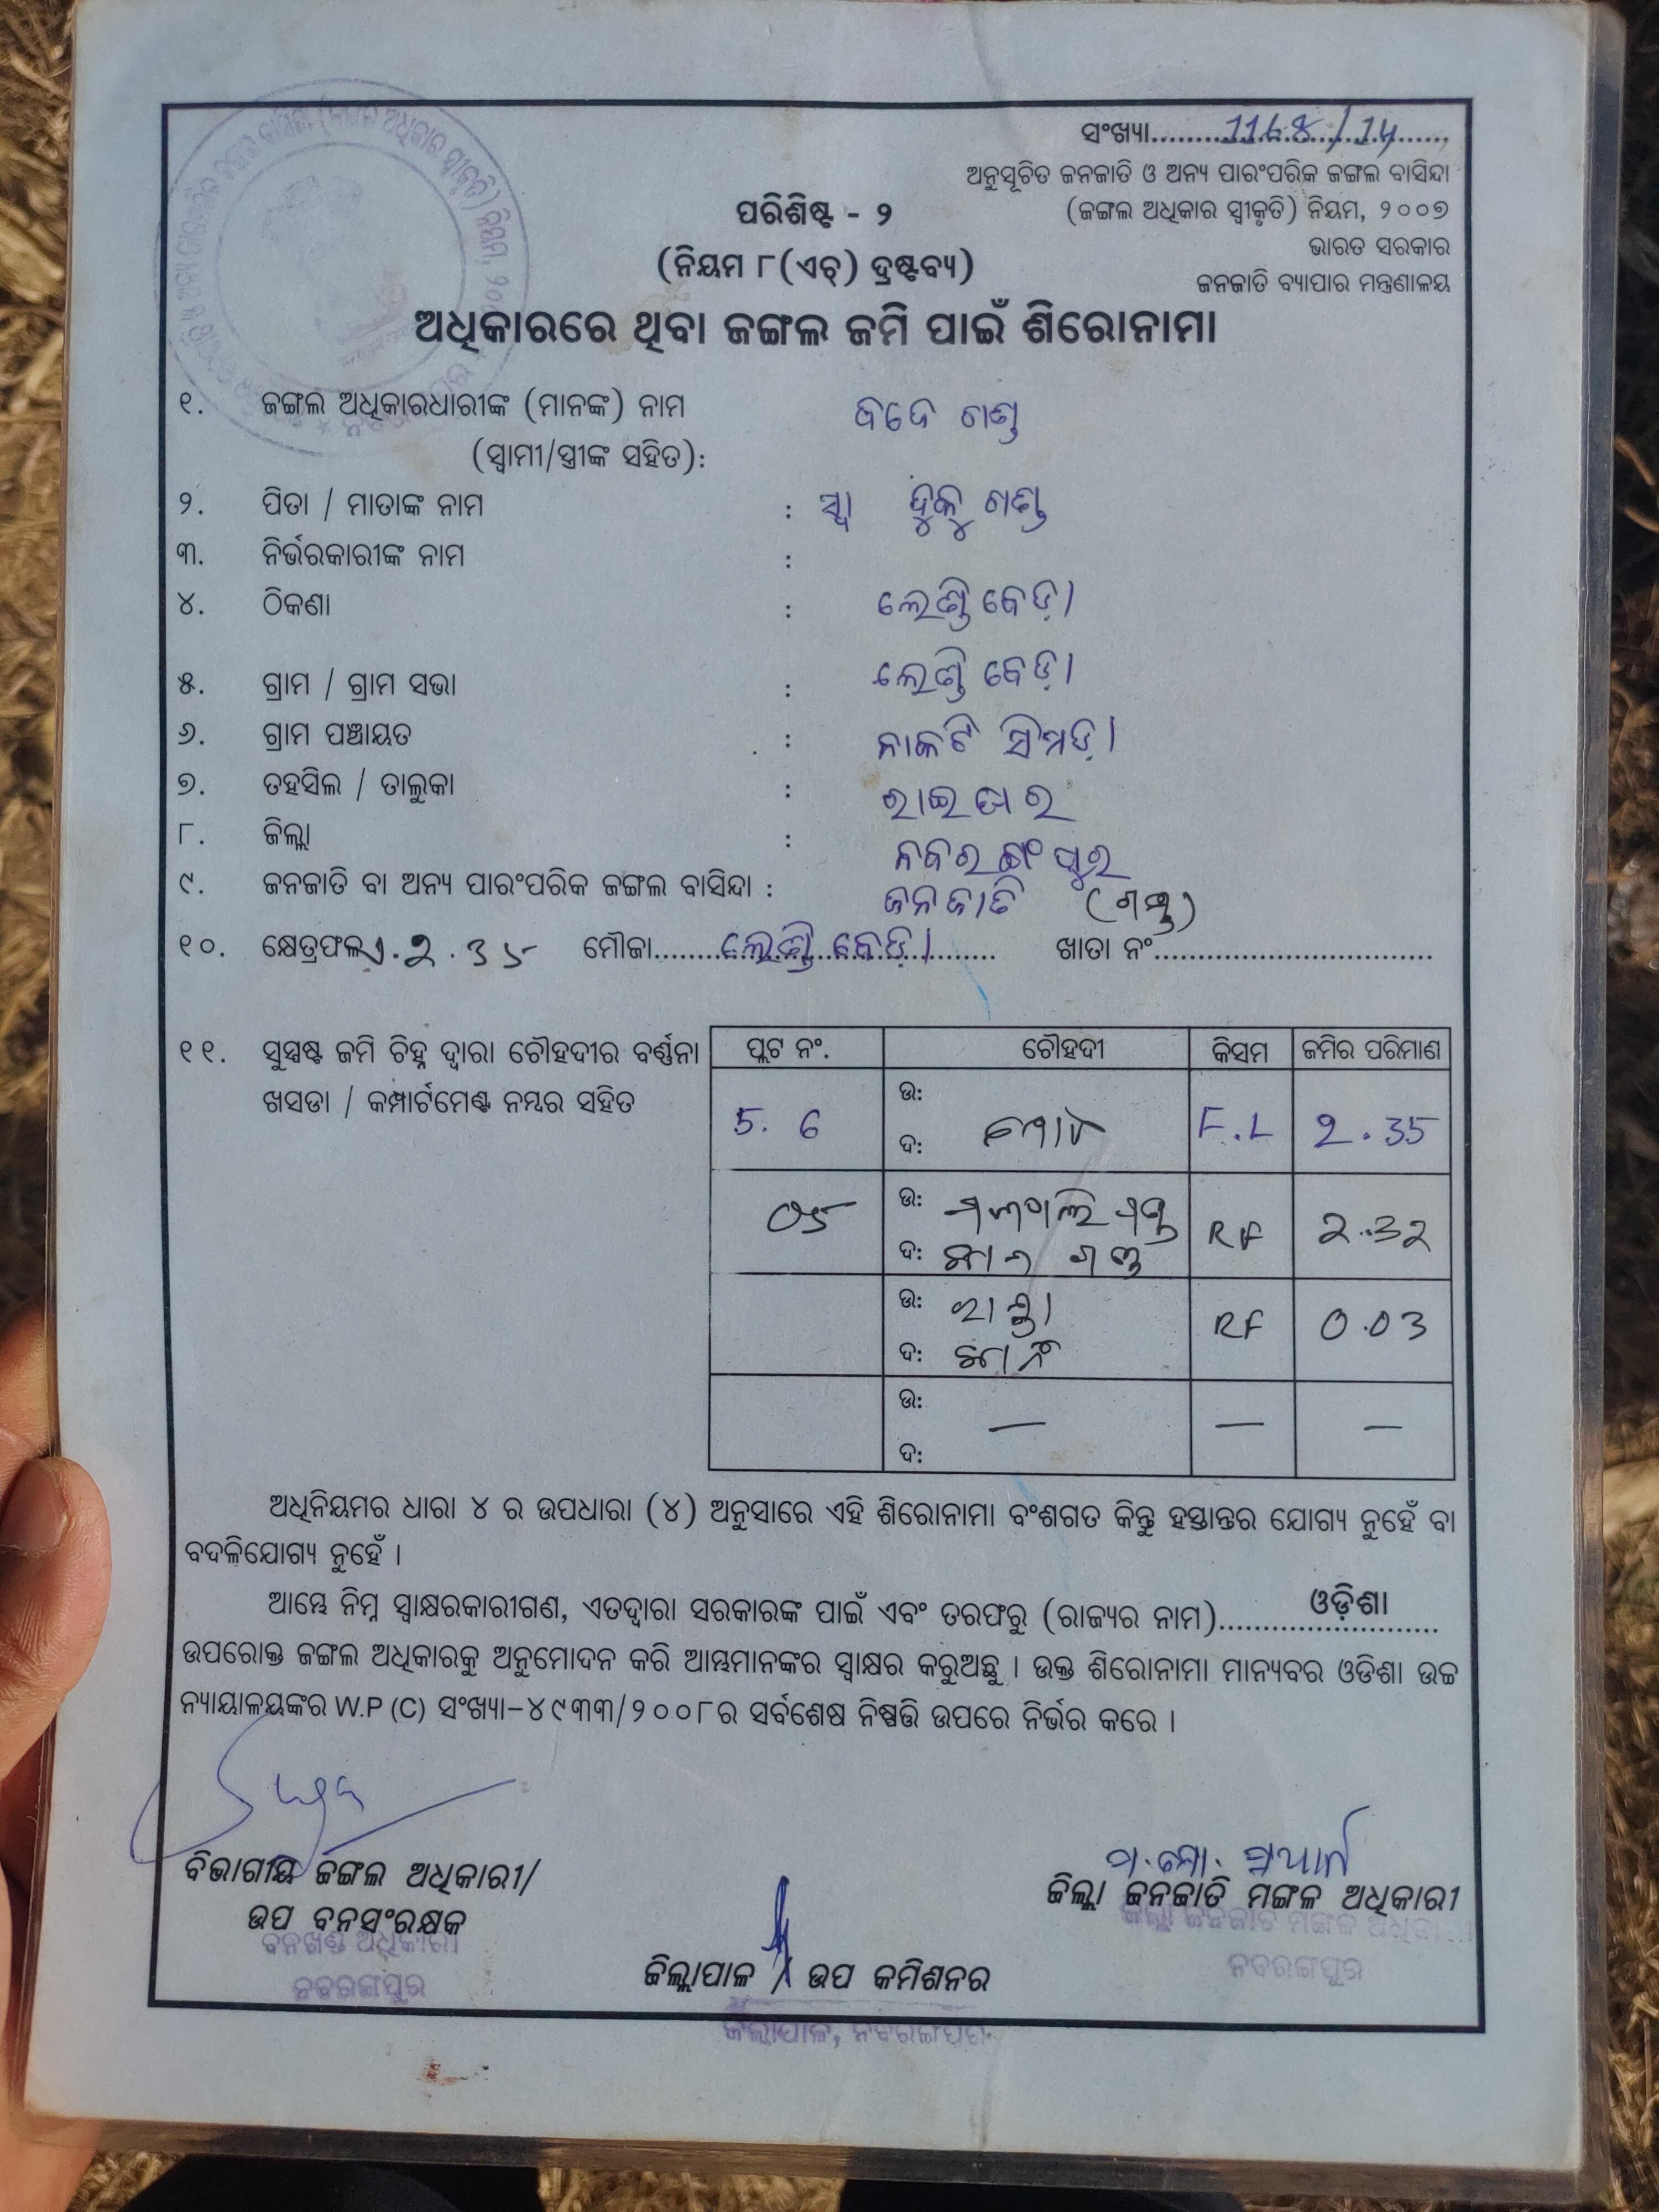 ସଂଖ୍ୟା...........1168/14......
ଅନୁସୂଚିତ ଜନଜାତି ଓ ଅନ୍ୟ ପାରଂପରିକ ଜଙ୍ଗଲ ବାସିନ୍ଦା
(ଜଙ୍ଗଲ ଅଧିକାର ସ୍ୱୀକୃତି) ନିୟମ, ୨୦୦୭
ଭାରତ ସରକାର
ଜନଜାତି ବ୍ୟାପାର ମନ୍ତ୍ରଣାଳୟ
ପରିଶିଷ୍ଟ - ୨
(ନିୟମ ୮(ଏଚ୍) ଦ୍ରଷ୍ଟବ୍ୟ)
ଅଧିକାରରେ ଥିବା ଜଙ୍ଗଲ ଜମି ପାଇଁ ଶିରୋନାମା
୧. ଜଙ୍ଗଲ ଅଧିକାରଧାରୀଙ୍କ (ମାନଙ୍କ) ନାମ
(ସ୍ୱାମୀ/ସ୍ତ୍ରୀଙ୍କ ସହିତ):
୨. ପିତା / ମାତାଙ୍କ ନାମ : ସ୍ୱା
୩. ନିର୍ଭରକାରୀଙ୍କ ନାମ :
୪. ଠିକଣା : ଲେଣ୍ଡି ବେଡ଼ା
୫. ଗ୍ରାମ / ଗ୍ରାମ ସଭା : ଲେଣ୍ଡି ବେଡ଼ା
୬. ଗ୍ରାମ ପଞ୍ଚାୟତ : ନାକଟି ସିମଡ଼ା
୭. ତହସିଲ / ତାଲୁକା : ରାଇଘର
୮. ଜିଲ୍ଲା : ନବରଙ୍ଗପୁର
୯. ଜନଜାତି ବା ଅନ୍ୟ ପାରଂପରିକ ଜଙ୍ଗଲ ବାସିନ୍ଦା : ଜନଜାତି (ଗଣ୍ଡ)
୧୦. କ୍ଷେତ୍ରଫଳ ଏ.2.35 ମୌଜା......ଲେଣ୍ଡି ବେଡ଼ା...... ଖାତା ନଂ...............................
୧୧. ସୁସ୍ପଷ୍ଟ ଜମି ଚିହ୍ନ ଦ୍ୱାରା ଚୌହଦୀର ବର୍ଣ୍ଣନା
ଖସଡା / କମ୍ପାର୍ଟମେଣ୍ଟ ନମ୍ବର ସହିତ
ପ୍ଲଟ ନଂ. ଚୌହଦୀ କିସମ ଜମିର ପରିମାଣ
5. 6 ଉ: ଦ: F.L 2.35
05 ଉ: ଦ: RF 2.32
ଉ: ରାସ୍ତା ଦ: RF 0.03
ଉ: ଦ: — — —
ଅଧିନିୟମର ଧାରା ୪ ର ଉପଧାରା (୪) ଅନୁସାରେ ଏହି ଶିରୋନାମା ବଂଶଗତ କିନ୍ତୁ ହସ୍ତାନ୍ତର ଯୋଗ୍ୟ ନୁହେଁ ବା
ବଦଳିଯୋଗ୍ୟ ନୁହେଁ ।
ଆମ୍ଭେ ନିମ୍ନ ସ୍ୱାକ୍ଷରକାରୀଗଣ, ଏତଦ୍ୱାରା ସରକାରଙ୍କ ପାଇଁ ଏବଂ ତରଫରୁ (ରାଜ୍ୟର ନାମ)......ଓଡ଼ିଶା......
ଉପରୋକ୍ତ ଜଙ୍ଗଲ ଅଧିକାରକୁ ଅନୁମୋଦନ କରି ଆମ୍ଭମାନଙ୍କର ସ୍ୱାକ୍ଷର କରୁଅଛୁ । ଉକ୍ତ ଶିରୋନାମା ମାନ୍ୟବର ଓଡିଶା ଉଚ୍ଚ
ନ୍ୟାୟାଳୟଙ୍କର W.P (C) ସଂଖ୍ୟା–୪୯୩୩/୨୦୦୮ର ସର୍ବଶେଷ ନିଷ୍ପତ୍ତି ଉପରେ ନିର୍ଭର କରେ ।
ବିଭାଗୀୟ ଜଙ୍ଗଲ ଅଧିକାରୀ/
ଉପ ବନସଂରକ୍ଷକ
ବନଖଣ୍ଡ ଅଧିକାରୀ
ନବରଙ୍ଗପୁର
ଜିଲ୍ଲାପାଳ / ଉପ କମିଶନର
ଜିଲ୍ଲାପାଳ, ନବରଙ୍ଗପୁର
ଜିଲ୍ଲା ଜନଜାତି ମଙ୍ଗଳ ଅଧିକାରୀ
ଜିଲ୍ଲା ଜନଜାତି ମଙ୍ଗଳ ଅଧିକାରୀ
ନବରଙ୍ଗପୁର